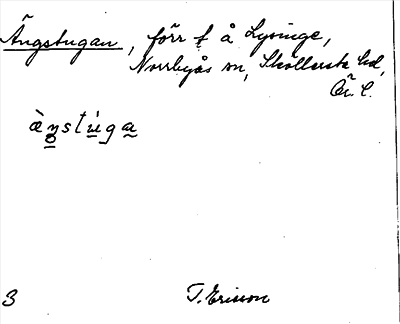 Ängstugan, förr t å Lysinge,
Norrbyås sn, Sköllersta hd,
Ör. l.
ä̀ŋstúga
3 T. Ericson